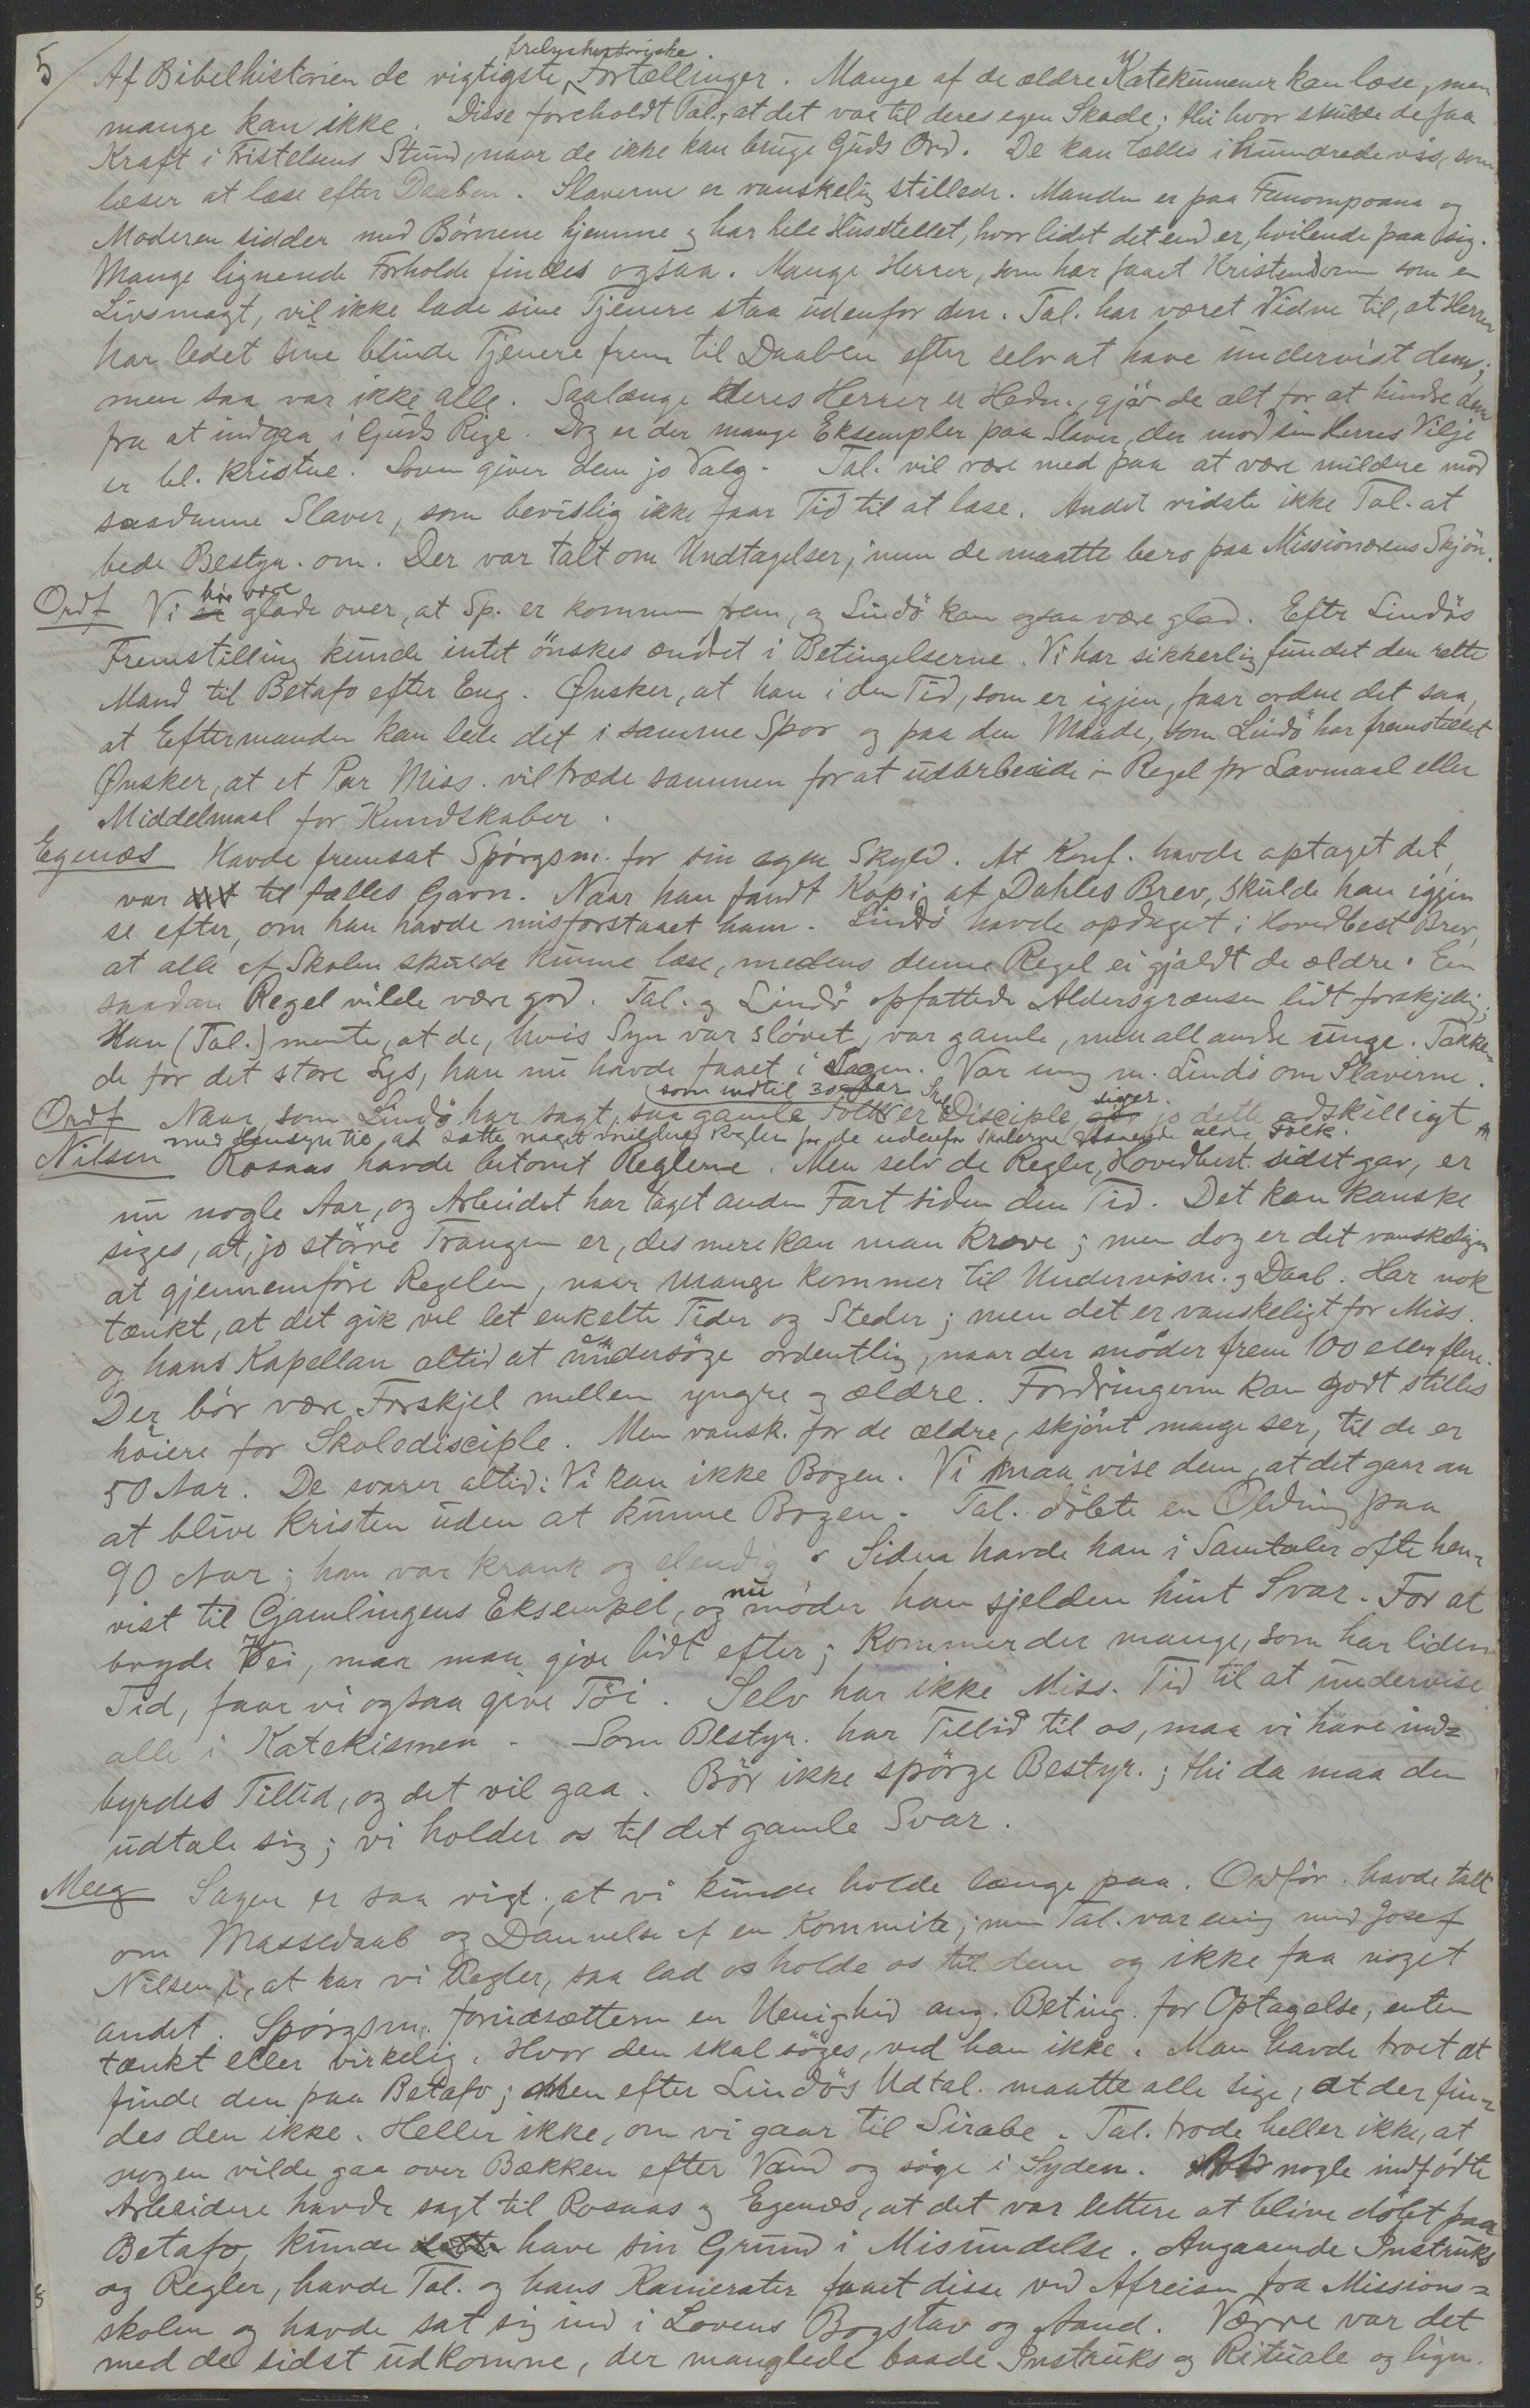 5/
frelseshistoriske
Af Bibelhistorien de vigtigste Fortællinger. Mange af de ældre Katekumener kan læse, men
mange kan ikke. Disse foreholdt Tal., at det var til deres egen Skade; thi hvor skulde de faa
Kraft i Fristelsens Stund, naar de ikke kan bruge Guds Ord. De kan tælles i hundredevis, som
læser at læse efter Daaben. Slaverne er vanskelig stillede. Manden er paa Fanompoana og
Moderen sidder med Børnene hjemme og har hele Husstellet, hvor lidet det end er, hvilende paa sig.
Mange lignende Forholde findes ogsaa. Mange Herrer, som har faaet Kristendom som en
Livsmagt, vil ikke lade sine Tjenere staa udenfor den. Tal. har været Vidne til, at Herren
har ledet sine blinde Tjenere frem til Daaben efter selv at have undervist dem;
men saa var ikke alle. Saalænge deres Herrer er Hedn., gjør de alt for at hindre dem
fra at indgaa i Guds Rige. Dog er der mange Eksempler paa Slaver, der mod sin Herres Vilje
er bl. kristne. Loven giver dem jo Valg. Tal. vil være med paa at være mildere mod
saadanne Slaver, som bevislig ikke faar Tid til at læse. Andet vidste ikke Tal. at
bede Bestyr. om. Der var talt om Undtagelser, men de maatte bero paa Missionærens Skjøn.
bør være
Ordf Vi er glade over, at Sp. er kommen frem, og Lindö kan ogsaa være glad. Efter Lindös
Fremstilling kunde intet önskes ændret i Betingelserne. Vi har sikkerlig fundet den rette
Mand til Betafo efter Eng. Ønsker, at han i den Tid, som er igjen, faar ordne det saa,
at Eftermanden kan lede det i samme Spor og paa den Maade, som Lindö har fremstillet
Ønsker, at et Par Miss. vil træde sammen for at udarbeide en Regel for Lavmaal eller
Middelmaal for Kundskaber.
Egenæs Havde fremsat Spörgsm. for sin egen Skyld. At Konf. havde optaget det,
var til fælles Gavn. Naar han fandt Kopi af Dahles Brev, skulde han igjen
se efter, om han havde misforstaaet ham. Lindö havde opdaget i Hovedbest Brev,
at alle af Skolen skulde kunne læse, medens denne Regel ei gjaldt de ældre. En
saadan Regel vilde være god. Tal. og Lindö opfattede Aldersgrænsen lidt forskjellig;
Han (Tal.) mente, at de, hvis Syn var slövet, var gamle, men all andre unge. Takke-
de for det store Lys, han nu havde faaet i Sagen. Var enig m. Lindö om Slaverne.
som indtil 30 Aar Sk
siger
Ordf Naar, som Lindö har sagt, saa gamle Folk er Disciple, jo dette adskilligt
med Hensyn til at sætte noget mildere Regler for de udenfor Skolerne staaende ældre Folk.
Nilsen Rosaas havde betonet Reglerne. Men selv de Regler, Hovedbest. sidst gav, er
nu nogle Aar, og Arbeidet har taget anden Fart siden den Tid. Det kan kanske
siges, at, jo större Trangen er, des mere kan man kræve; men dog er det vanskeligere
at gjennemføre Regelen, naar mange kommer til Undervisn. og Daab. Har nok
tænkt, at det gik vel let enkelte Tider og Steder; men det er vanskeligt for Miss.
og hans Kapellan altid at undersöge ordentlig, naar der möder frem 100 eller flere.
Der bör være Forskjel mellem yngre og ældre. Fordringerne kan godt stilles
höiere for Skoledisciple. Men vansk. for de ældre, skjönt mange ser, til de er
50 Aar. De svarer altid: Vi kan ikke Bogen. Vi maa vise dem, at det gaar an
at blive kristen uden at kunne Bogen. Tal. döbte en Olding paa
90 Aar; han var krank og elendig. Siden havde han i Samtaler ofte hen-
nu
vist til Gamlingens Eksempel, og möder han sjelden hint Svar. For at
bryde Vei, maa man give lidt efter; kommer der mange, som har liden
Tid, faar vi ogsaa give Töi. Selv har ikke Miss. Tid til at undervise
alle i Katekismen. Som Bestyr. har Tillid til os, maa vi have ind-
byrdes Tillid, og det vil gaa. Bör ikke spörge Bestyr.; thi da maa den
udtale sig; vi holder os til det gamle Svar.
Meeg Sagen er saa vigt., at vi kunde holde længe paa. Ordför. havde talt
om Massedaab og Dannelse af en Kommite; men Tal. var enig med Josef
Nilsen i, at har vi Regler, saa lad os holde os til dem og ikke faa noget
andet. Spörgsm. forudsætter en Uenighed ang. Beting. for Optagelse, enten
tænkt eller virkelig. Hvor den skal söges, ved han ikke. Man havde troet at
finde den paa Betafo; men efter Lindö's Udtal. maatte alle sige, at der fin-
des den ikke. Heller ikke, om vi gaar til Sirabe. Tal. trode heller ikke, at
nogen vilde gaa over Bækken efter Vand og söge i Syden. nogle indfödte
Arbeidere havde sagt til Rosaas og Egenæs, at det var lettere at blive döbt paa
Betafo, kunde have sin Grund i Misundelse. Angaaende Instruks
og Regler, havde Tal. og hans Kamerater faaet disse ved Afreisen fra Missions-
skolen og havde sat sig ind i Lovens Bogstav og Aand. Værre var det
med de sidst udkomne, der manglede baade Instruks og Rituale og lign.